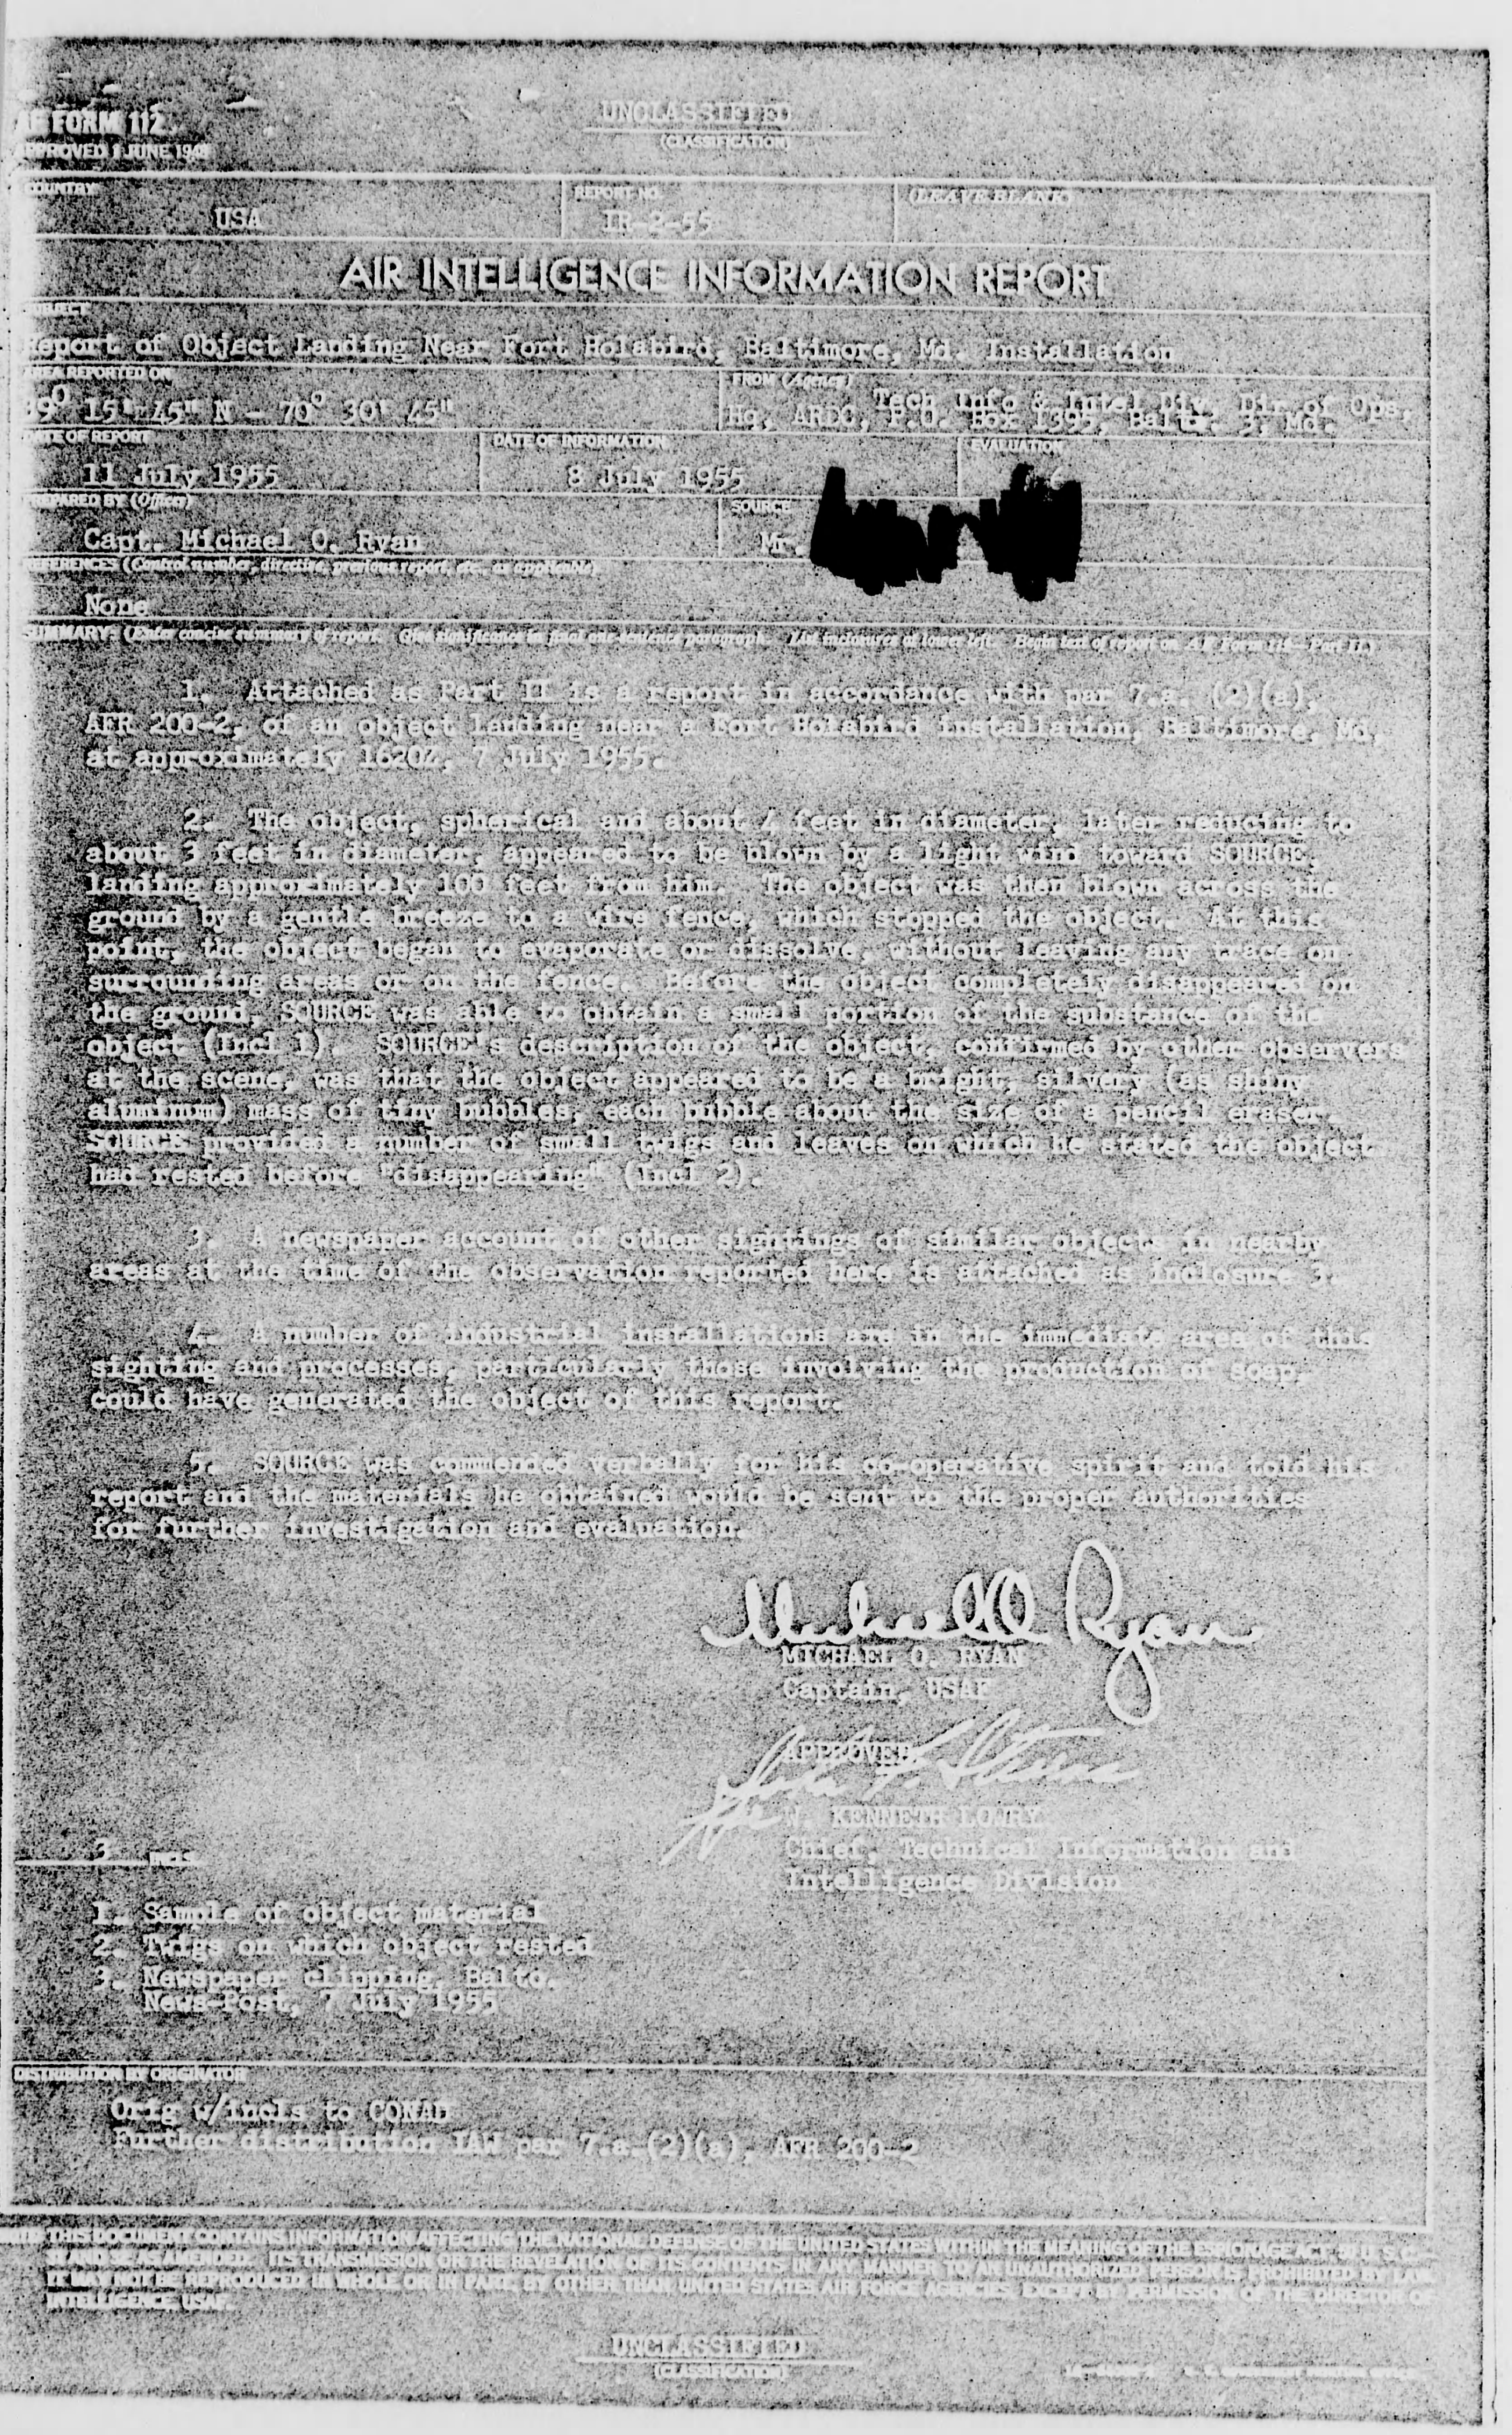 AF FORM 112
APPROVED 1 JUNE 1948
UNCLASSIFIED
(CLASSIFICATION)
COUNTRY
REPORT NO.
(LEAVE BLANK)
USA
IR-2-55
AIR INTELLIGENCE INFORMATION REPORT
SUBJECT
Report of Object Landing Near Fort Holabird, Baltimore, Md. Installation
AREA REPORTED ON
FROM (Agency)
39° 15' 45" N - 70° 30' 45"
Tech Info & Intel Div, Dir of Ops,
Hq, ARDC, P.O. Box 1395, Balto. 3, Md.
DATE OF REPORT
DATE OF INFORMATION
EVALUATION
11 July 1955
8 July 1955
PREPARED BY (Officer)
SOURCE
Capt. Michael O. Ryan
Mr.
REFERENCES (Control number, directive, previous report, etc., as applicable)
None
SUMMARY: (Enter concise summary of report. Give significance in final one-sentence paragraph. List inclosures at lower left. Begin text of report on AF Form 112—Part II.)
1. Attached as Part II is a report in accordance with par 7.a. (2)(a),
AFR 200-2, of an object landing near a Fort Holabird installation, Baltimore, Md,
at approximately 1620Z, 7 July 1955.
2. The object, spherical and about 4 feet in diameter, later reducing to
about 3 feet in diameter, appeared to be blown by a light wind toward SOURCE,
landing approximately 100 feet from him. The object was then blown across the
ground by a gentle breeze to a wire fence, which stopped the object. At this
point, the object began to evaporate or dissolve, without leaving any trace on
surrounding areas or on the fence. Before the object completely disappeared on
the ground, SOURCE was able to obtain a small portion of the substance of the
object (Incl 1). SOURCE's description of the object, confirmed by other observers
at the scene, was that the object appeared to be a bright, silvery (as shiny
aluminum) mass of tiny bubbles, each bubble about the size of a pencil eraser.
SOURCE provided a number of small twigs and leaves on which he stated the object
had rested before "disappearing" (Incl 2).
3. A newspaper account of other sightings of similar objects in nearby
areas at the time of the observation reported here is attached as Inclosure 3.
4. A number of industrial installations are in the immediate area of this
sighting and processes, particularly those involving the production of soap,
could have generated the object of this report.
5. SOURCE was commended verbally for his co-operative spirit and told his
report and the materials he obtained would be sent to the proper authorities
for further investigation and evaluation.
Michael O. Ryan
MICHAEL O. RYAN
Captain, USAF
APPROVED:
KENNETH LOWRY
Chief, Technical Information and
Intelligence Division
3 INCLS
1. Sample of object material
2. Twigs on which object rested
3. Newspaper clipping, Balto.
News-Post, 7 July 1955
DISTRIBUTION BY ORIGINATOR
Orig w/incls to CONAD
Further distribution IAW par 7.a.(2)(a), AFR 200-2
THIS DOCUMENT CONTAINS INFORMATION AFFECTING THE NATIONAL DEFENSE OF THE UNITED STATES WITHIN THE MEANING OF THE ESPIONAGE ACT, 50 U. S. C.
31 AND 32, AS AMENDED. ITS TRANSMISSION OR THE REVELATION OF ITS CONTENTS IN ANY MANNER TO AN UNAUTHORIZED PERSON IS PROHIBITED BY LAW.
IT MAY NOT BE REPRODUCED IN WHOLE OR IN PART, BY OTHER THAN UNITED STATES AIR FORCE AGENCIES, EXCEPT BY PERMISSION OF THE DIRECTOR OF
INTELLIGENCE, USAF.
UNCLASSIFIED
(CLASSIFICATION)